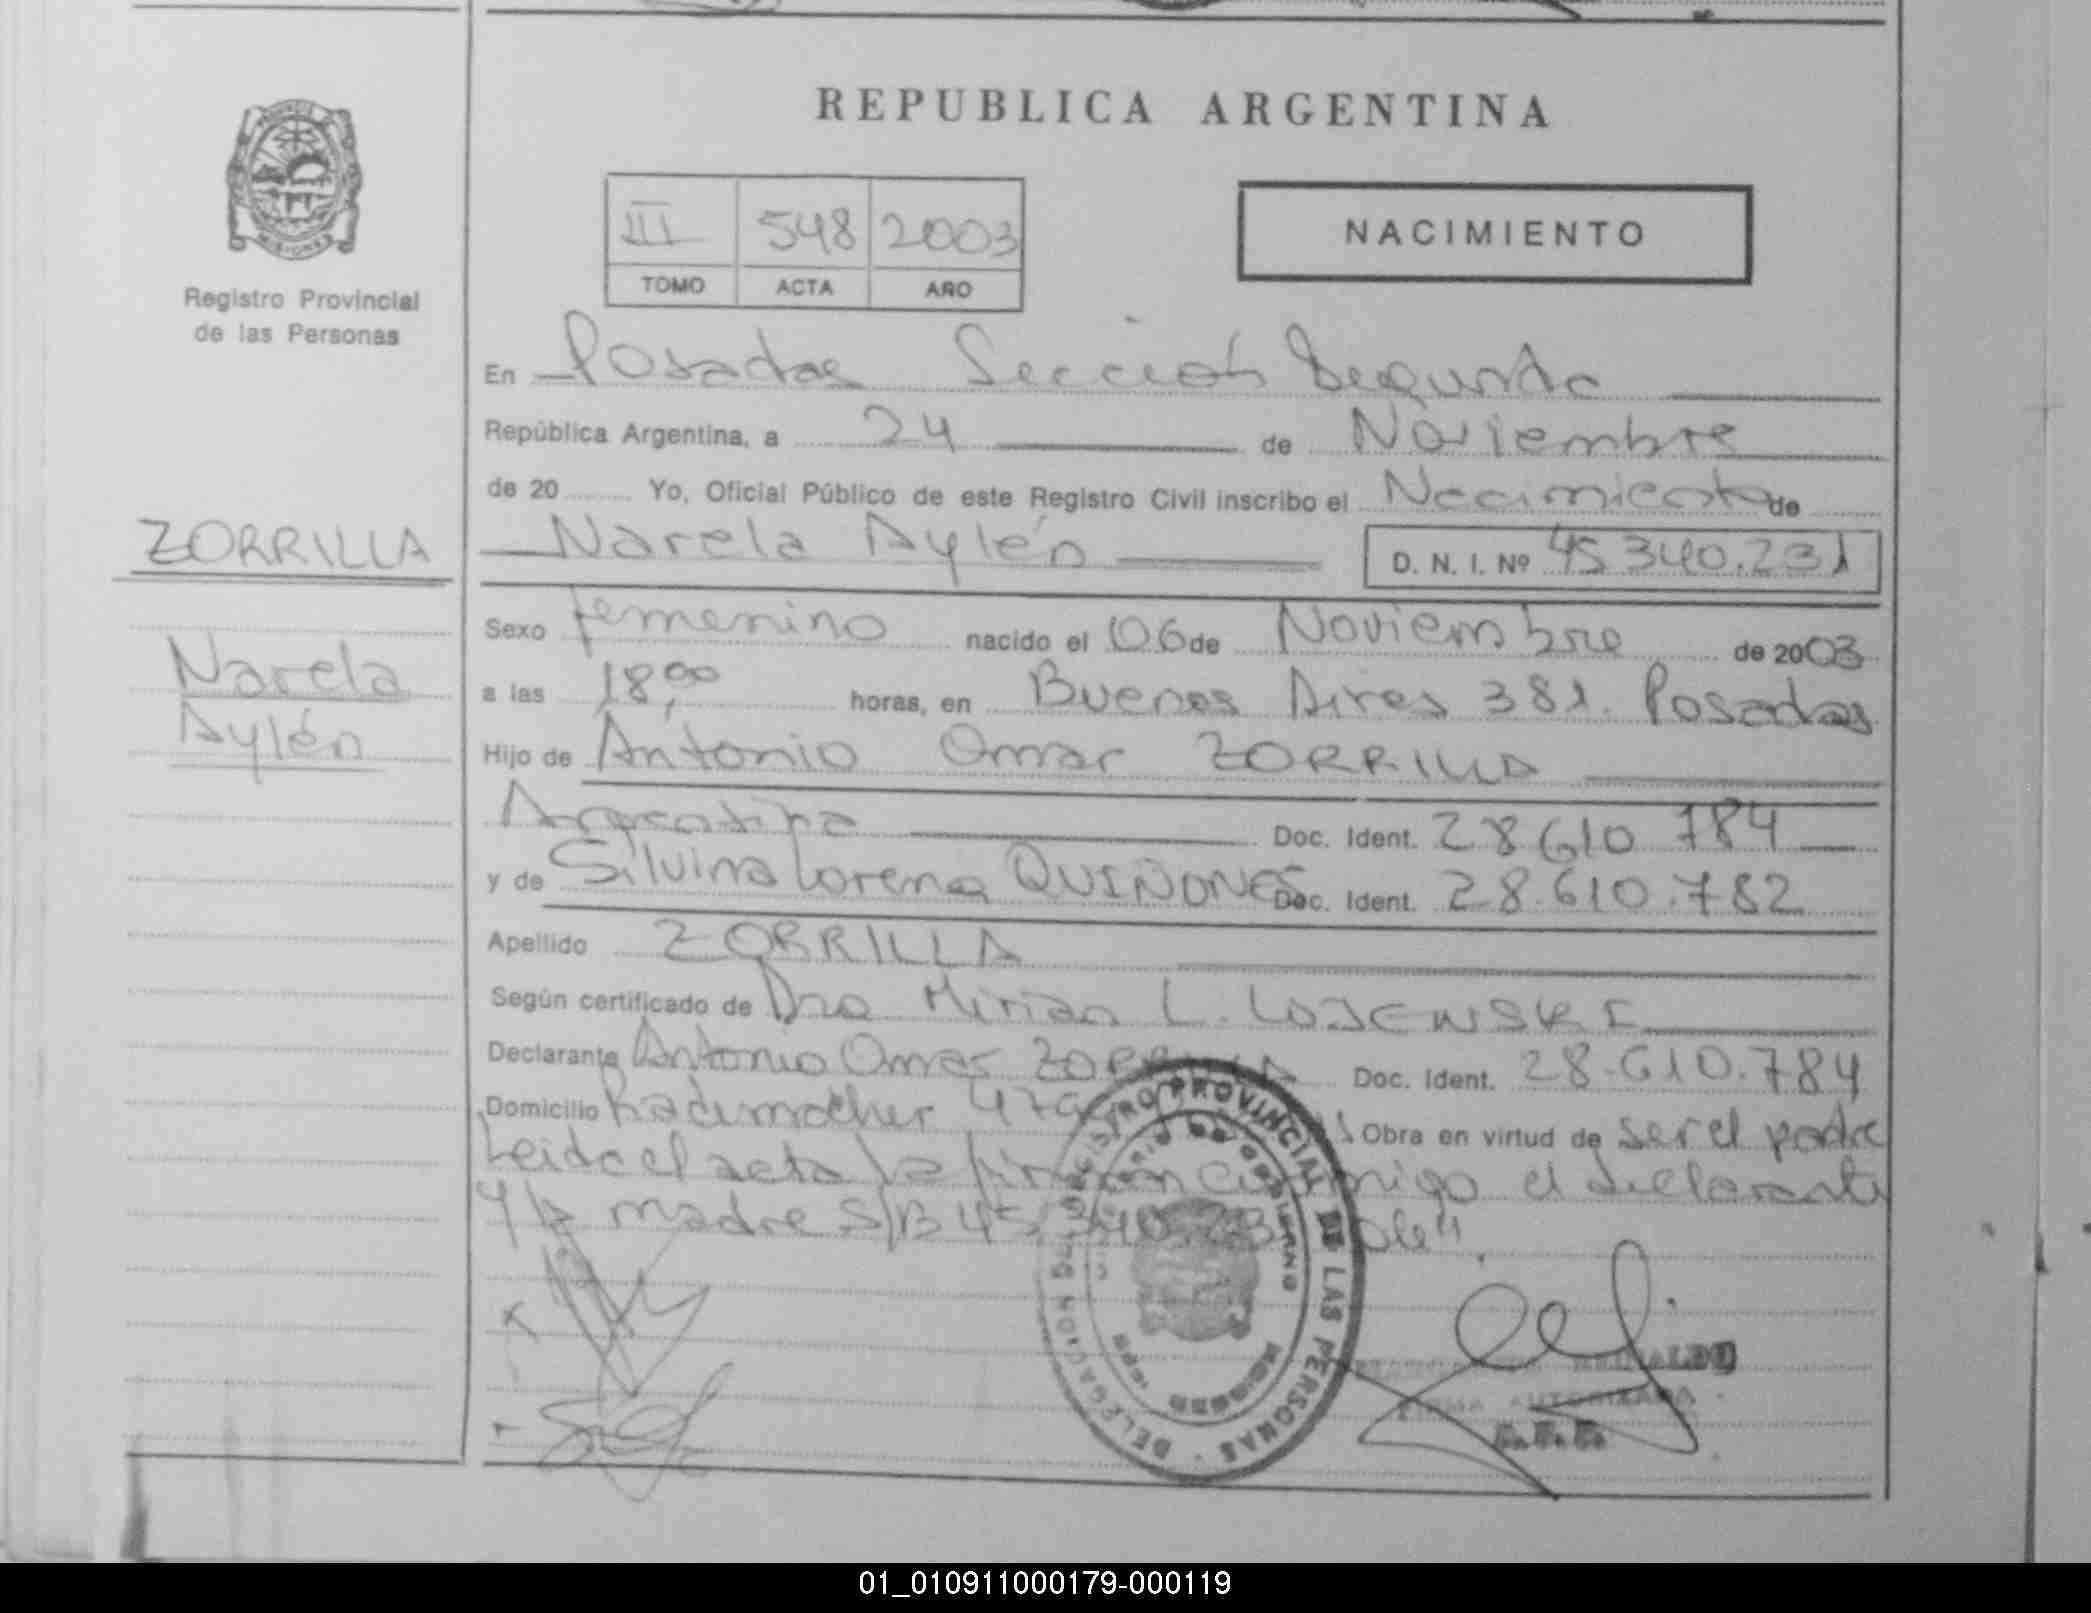 REPUBLICA ARGENTINA
MISIONES
Registro Provincial
de las Personas
III 548 2003
TOMO ACTA AÑO
NACIMIENTO
En Posadas Sección Segunda
República Argentina, a 24 de Noviembre
de 20 Yo, Oficial Público de este Registro Civil inscribo el Nacimiento de
Narela Aylén D. N. I. Nº 45 340.231
ZORRILLA
Narela
Aylén
Sexo femenino nacido el 06 de Noviembre de 2003
a las 18,00 horas, en Buenos Aires 381. Posadas
Hijo de Antonio Omar ZORRILLA
Argentina Doc. Ident. 28 610 784
y de Silvina Lorena QUIÑONES Doc. Ident. 28.610.782
Apellido ZORRILLA
Según certificado de Dra Mirian L. LOJENSKI
Declarante Antonio Omar ZORRILLA Doc. Ident. 28.610.784
Domicilio Obra en virtud de ser el padre
Leida el acta la firman conmigo el declarante
y la madre S/B 45.340.231
REGISTRO PROVINCIAL DE LAS PERSONAS
DELEGACION
MISIONES
REINALDO
FIRMA AUTORIZADA
01_010911000179-000119